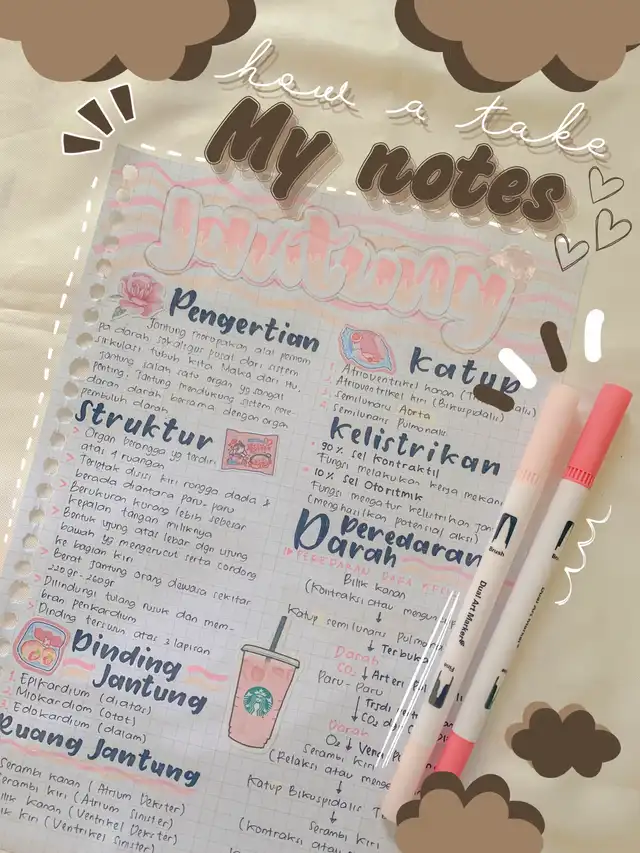 how a take
My notes
Jantung
Pengertian
Jantung merupakan alat pemom
pa darah sekaligus pusat dari sistem
sirkulasi tubuh kita. Maka dari itu,
jantung salah satu organ yg sangat
penting. Jantung mendukung sistem pere-
daran darah bersama dengan organ
pembuluh darah
Struktur
> Organ berongga yg terdiri
atas 4 ruangan
> Terletak disisi kiri rongga dada &
berada diantara paru-paru
> Berukuran kurang lebih sebesar
kepalan tangan miliknya
> Bentuk ujung atas lebar dgn ujung
bawah yg mengerucut serta condong
ke bagian kiri
> Berat jantung orang dewasa sekitar
220 gr-260gr
> Dilindungi tulang rusuk dan mem-
bran penkardium
> Dinding tersusun atas 3 lapisan
Dinding
Jantung
1. Epikardium (diatas)
2. Miokardiom (otot)
3. Edokardium (dalam)
Ruang Jantung
Serambi kanan (Atrium Dekster)
Serambi kiri (Atrium Sinister)
Bilik kanan (Ventrikel Dekster)
Bilik kiri (Ventrikel Sinister)
Katup
1. Atrioventrikel kanan
2. Atrioventrikel kiri (Bikuspidalis)
3. Semilunaris Aorta
Semilunaris Pulmonalis
Kelistrikan
• 90% sel Kontraktil
Fungsi melakukan kerja mekan
• 10% Sel Otoritmik
Fungsi mengatur kelistrikan jan
(menghasilkan potensial aksi)
Peredaran
Darah
PEREDARAN DARA
Bilik kanan
(Kontraksi atau
Katup semilunaris Pulmona
↓ Terbuka
Darah
CO₂ ↓ Arteri
Paru-Paru
↓
CO₂
Darah
O₂ ↓ Vena
Serambi kiri
(Relaksi atau menge
Katup Bikuspidalis
Serambi kiri
(kontraksi atau
Brush
Dual Art Marker
Fine